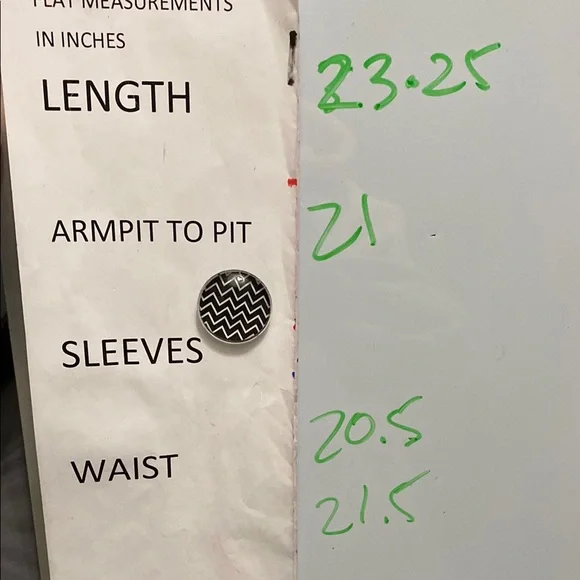 FLAT MEASUREMENTS
IN INCHES
LENGTH 23.25
ARMPIT TO PIT 21
SLEEVES
20.5
WAIST
21.5